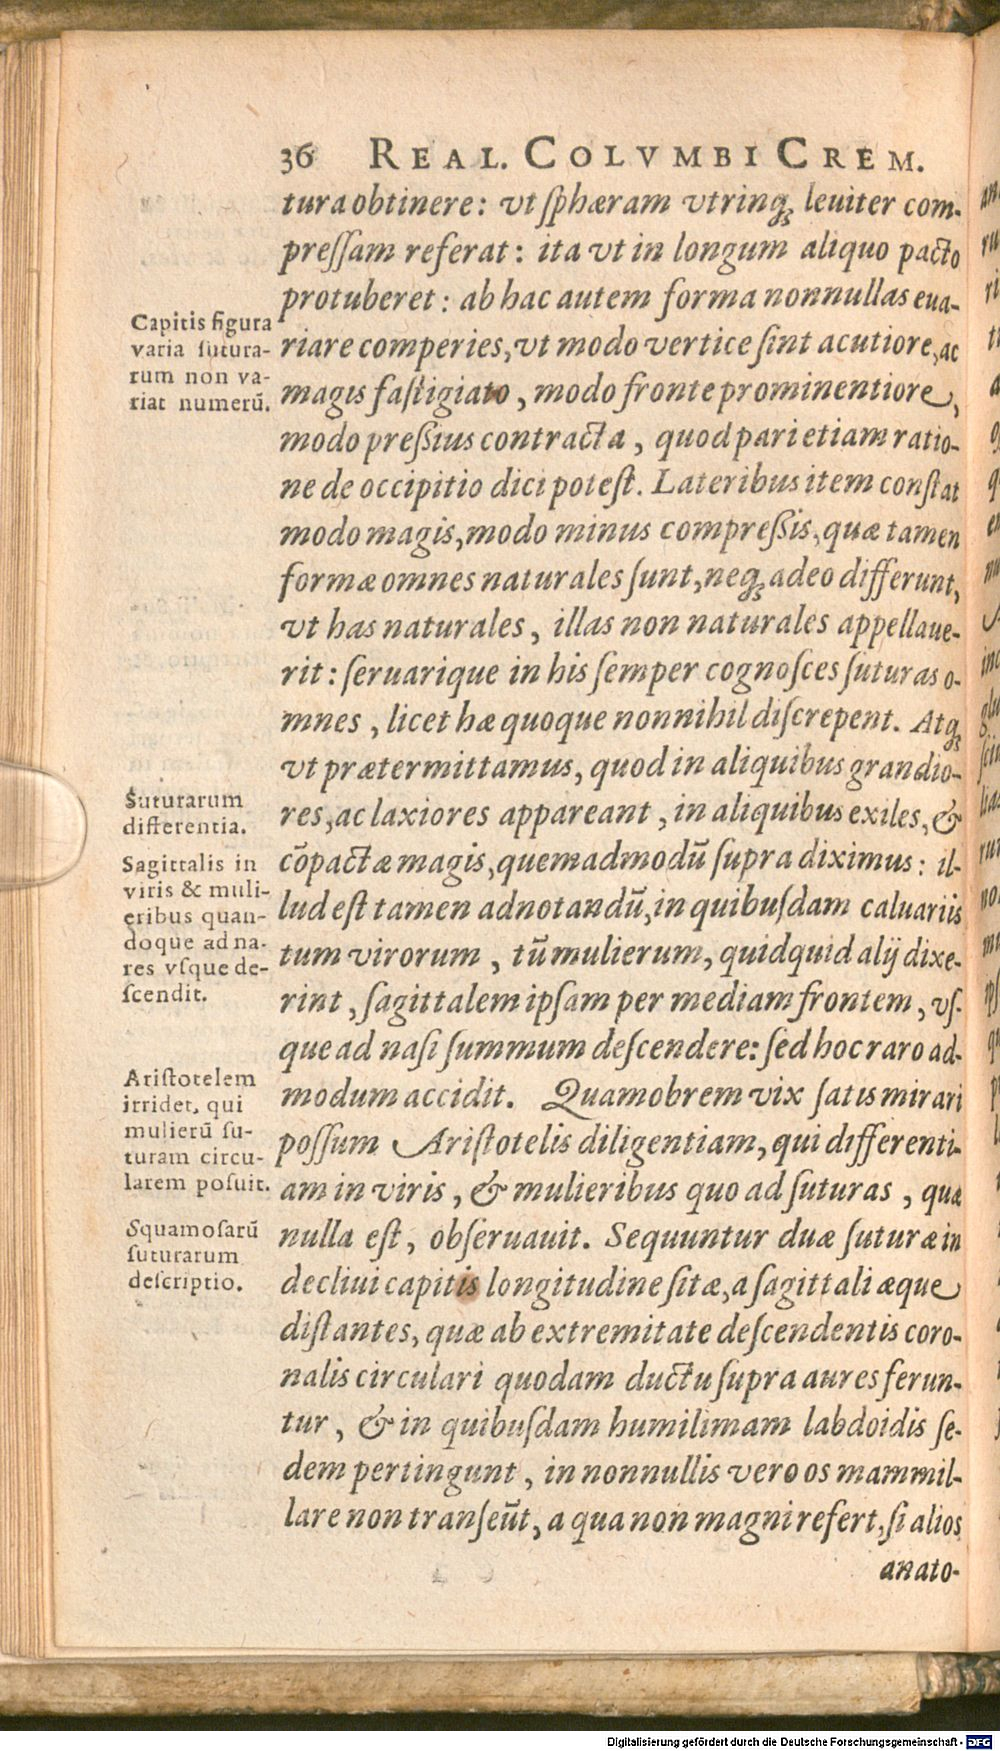 36 REAL. COLVMBI CREM.
tura obtinere: vt sphæram vtrinq; leuiter com-
pressam referat: ita vt in longum aliquo pacto
protuberet: ab hac autem forma nonnullas eua-
riare comperies, vt modo vertice sint acutiore, ac
magis fastigiato, modo fronte prominentiore,
modo preßius contracta, quod pari etiam ratio-
ne de occipitio dici potest. Lateribus item constat
modo magis, modo minus compreßis, quæ tamen
formæ omnes naturales sunt, neq; adeo differunt,
vt has naturales, illas non naturales appellaue-
rit: seruarique in his semper cognosces suturas o-
mnes, licet hæ quoque nonnihil discrepent. Atq;
vt prætermittamus, quod in aliquibus grandio-
res, ac laxiores appareant, in aliquibus exiles, &
cōpactæ magis, quemadmodū supra diximus: il-
lud est tamen adnotandū, in quibusdam caluariis
tum virorum, tū mulierum, quidquid alij dixe-
rint, sagittalem ipsam per mediam frontem, vs-
que ad nasi summum descendere: sed hoc raro ad-
modum accidit. Quamobrem vix satis mirari
possum Aristotelis diligentiam, qui differenti-
am in viris, & mulieribus quo ad suturas, quæ
nulla est, obseruauit. Sequuntur duæ suturæ in
decliui capitis longitudine sitæ, a sagittali æque
distantes, quæ ab extremitate descendentis coro-
nalis circulari quodam ductu supra aures ferun-
tur, & in quibusdam humilimam labdoidis se-
dem pertingunt, in nonnullis vero os mammil-
lare non transeūt, a qua non magni refert, si alios
anato-
Capitis figura
varia sutura-
rum non va-
riat numerū.
Suturarum
differentia.
Sagittalis in
viris & muli-
eribus quan-
doque ad na-
res vsque de-
scendit.
Aristotelem
irridet, qui
mulierū su-
turam circu-
larem posuit.
Squamosarū
suturarum
descriptio.
Digitalisierung gefördert durch die Deutsche Forschungsgemeinschaft - DFG